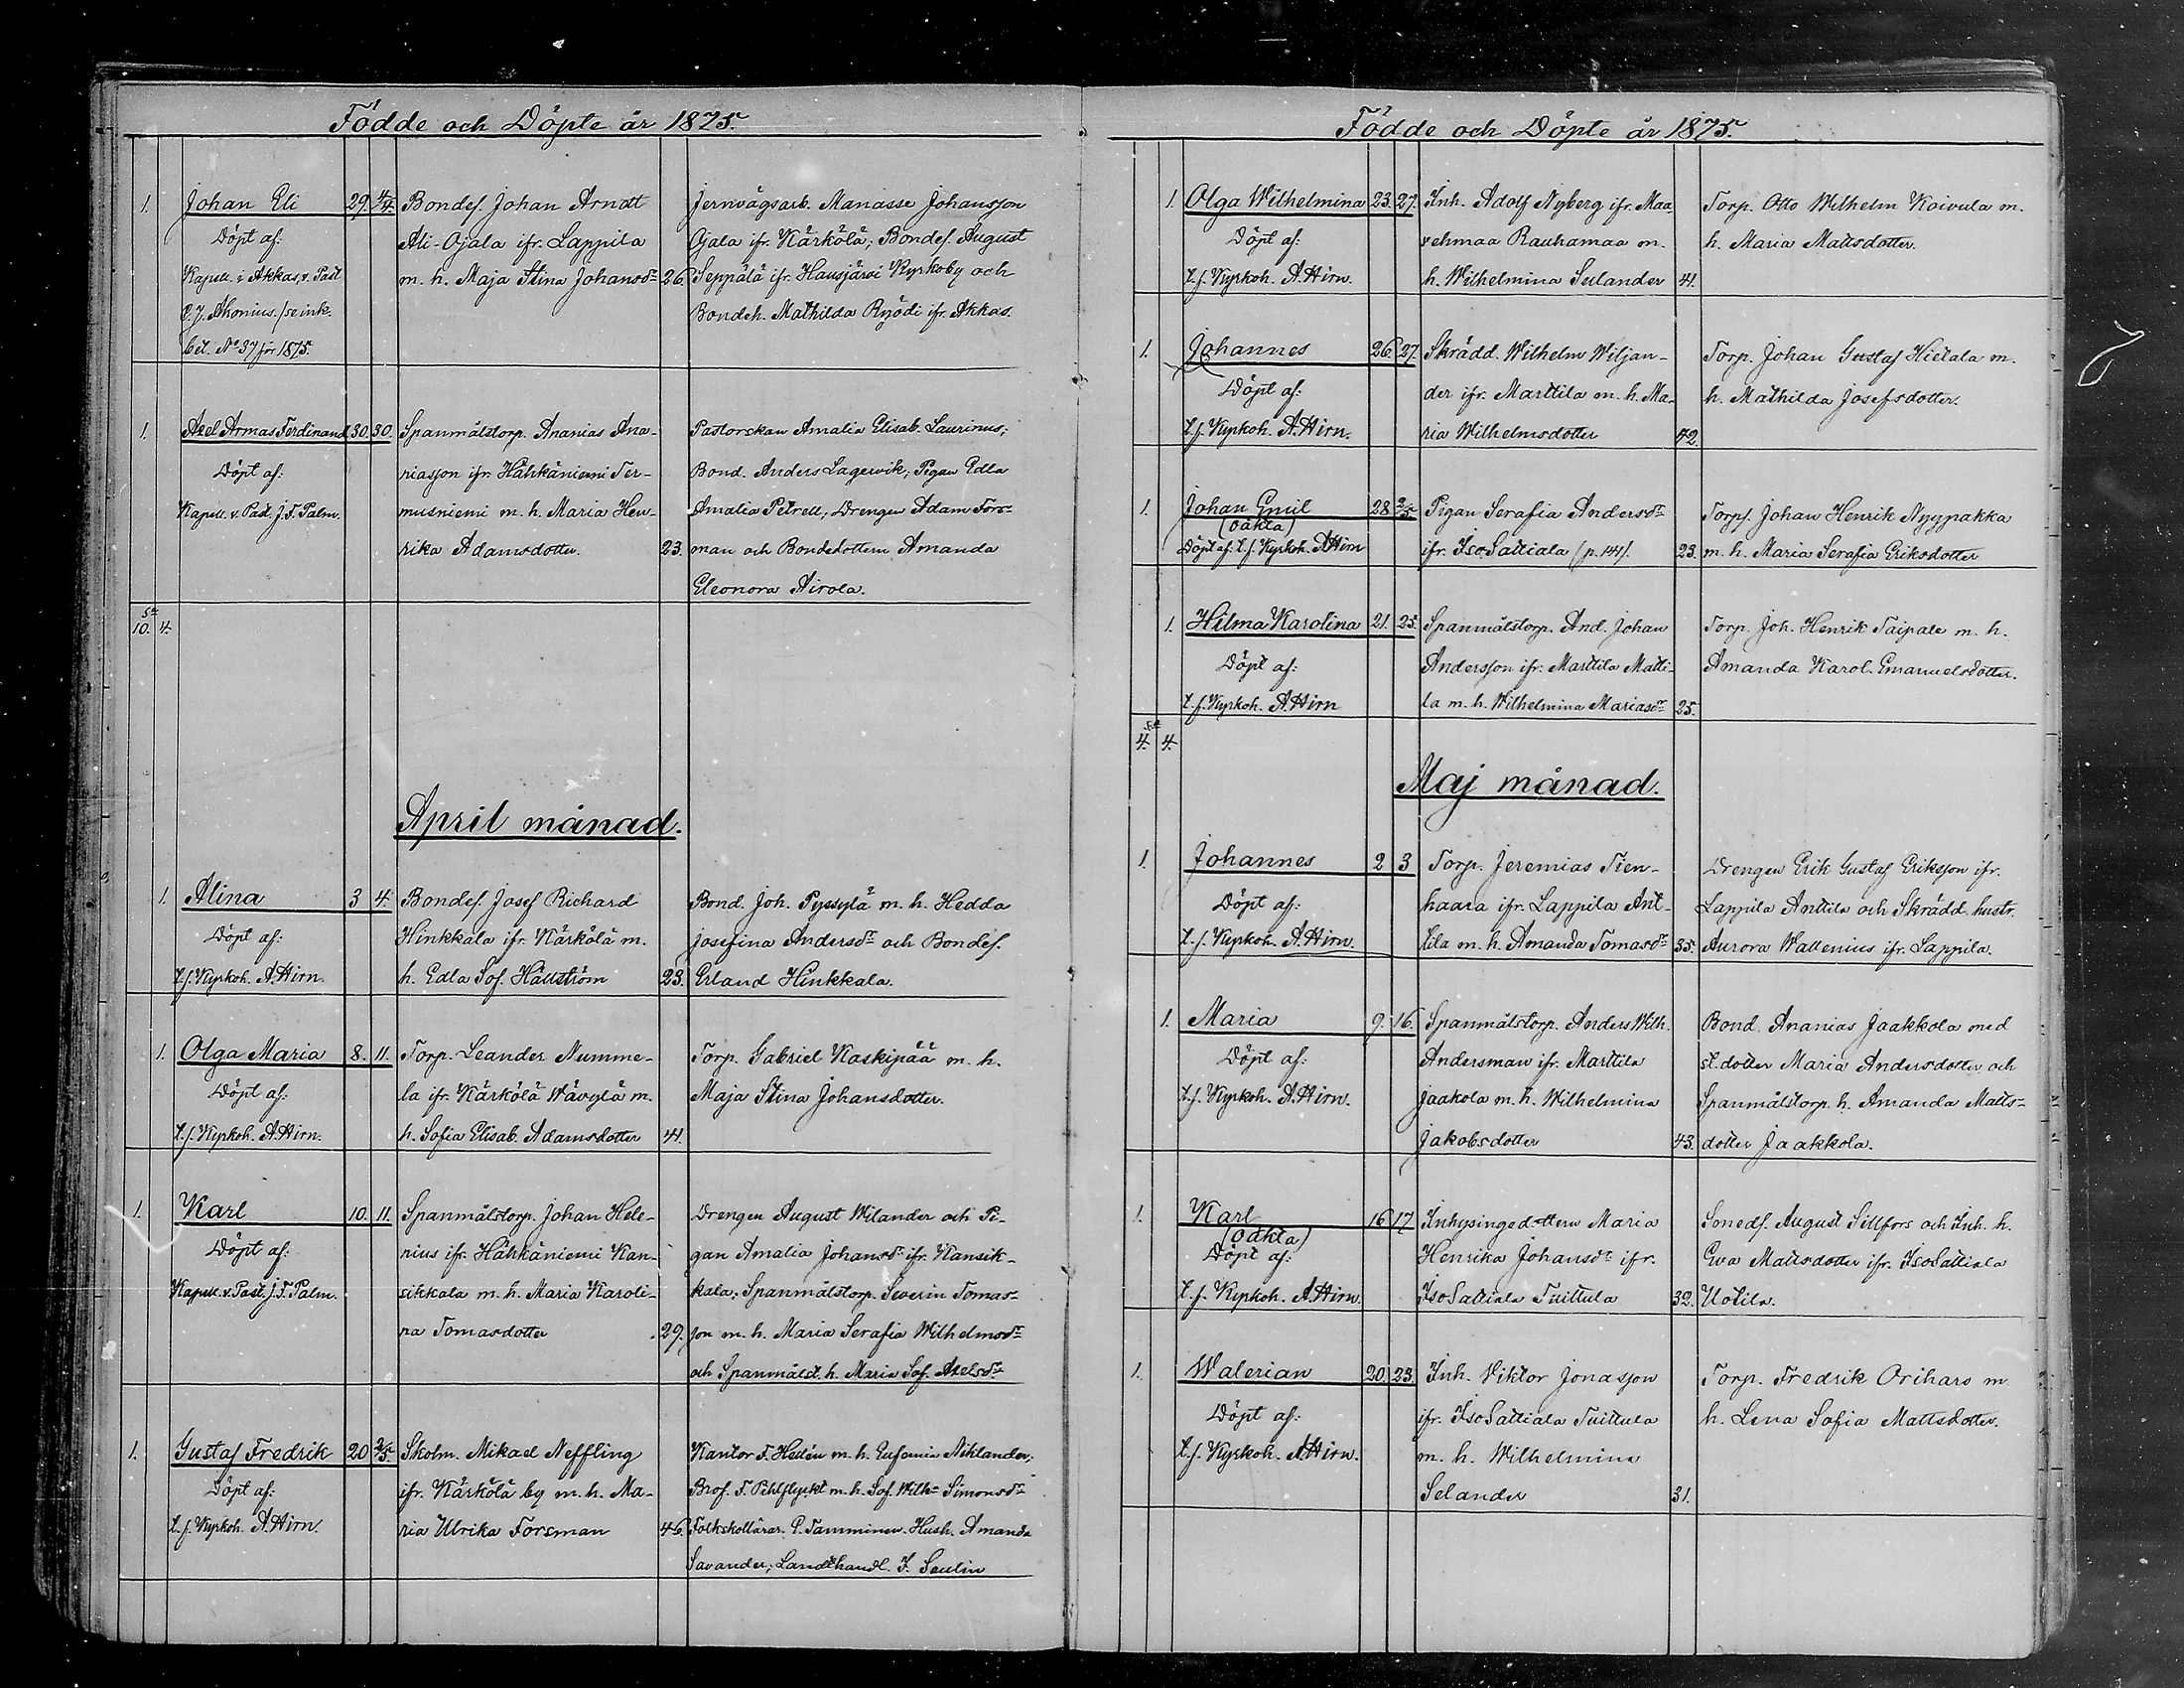 Födde och Döpte år 1875.
1. Johan Eli 29. 1/4. Bondes. Johan Arnatt Jernvägsarb. Manasse Johansson
Döpt af: Ali-Ojala ifr. Lappila Ojala ifr. Kärkölä; Bondes. August
Kapell. i Akkas, v. Past m. h. Maja Stina Johansdr 26. Seppälä ifr. Hausjärvi Kyrkoby och
C. J. Ahonius. /se ink. Bondeh. Mathilda Rnjödi ifr. Akkas.
bet. No 37 för 1875.
1. Axel Armas Ferdinand 30. 30. Spanmålstorp. Ananias Ana- Pastorskan Amalia Elisab. Laurinus;
Döpt af: niasson ifr. Hähkäniemi Ter- Bond. Anders Lagervik; Pigan Edla
Kapell. v. Past. J. F. Palm. musniemi m. h. Maria Hen- Amalia Petrell; Drengen Adam Fors-
rika Adamsdotter. 23. man och Bondedottern Amanda
Eleonora Airola.
Sa
10. 4.
April månad.
1. Alina 3 4. Bondes. Josef Richard Bond. Joh. Pyssylä m. h. Hedda
Döpt af: Hinkkala ifr. Kärkölä m. Josefina Andersdr och Bondes.
t. f. Kyrkoh. A. Hirn. h. Edla Sof. Hällström 23. Erland Hinkkala.
1. Olga Maria 8. 11. Torp. Leander Numme- Torp. Gabriel Koskipää m. h.
Döpt af: la ifr. Kärkölä Wävylä m. Maja Stina Johansdotter.
t. f. Kyrkoh. A. Hirn. h. Sofia Elisab. Adamsdotter 41.
1. Karl 10. 11. Spanmålstorp. Johan Hele- Drengen August Wilander och Pi-
Döpt af: nius ifr. Hähkäniemi Kan- gan Amalia Johansdr ifr. Kansik-
Kapell. v. Past. J. F. Palm. sikkala m. h. Maria Karoli- kala; Spanmålstorp. Severin Tomas-
na Tomasdotter 29. son m. h. Maria Serafia Wilhelmsdr
och Spanmålst. h. Maria Sof. Axelsdr
1. Gustaf Fredrik 20 2/5. Skolm. Mikael Neffling Kantor F. Hedén m. h. Eufemia Niklander;
Döpt af: ifr. Kärkölä by m. h. Ma- Prof. F. Pihlflyckt m. h. Sof. Wilh= Simonsdr
t. f. Kyrkoh. A. Hirn. ria Ulrika Forsman 46. Folkskollärar. P. Tamminen. Hush. Amanda
Savander; Landthandl. J. Saulin
Födde och Döpte år 1875.
1. Olga Wilhelmina 23. 27. Inh. Adolf Nyberg ifr. Maa- Torp. Otto Wilhelm Koivula m.
Döpt af: vehmaa Rauhamaa m. h. Maria Mattsdotter.
t. f. Kyrkoh. A. Hirn. h. Wilhelmina Sulander 41.
1. Johannes 26. 27. Skrädd. Wilhelm Wiljan- Torp. Johan Gustaf Hietala m.
Döpt af: der ifr. Marttila m. h. Ma- h. Mathilda Josefsdotter.
t. f. Kyrkoh. A. Hirn. ria Wilhelmsdotter 42.
1. Johan Emil 28 2/5. Pigan Serafia Andersdr Torps. Johan Henrik Nyypakka
(oäkta)
Döpt af: t. f. Kyrkoh. A. Hirn ifr. IsoSattiala (p. 141). 23. m. h. Maria Serafia Eriksdotter
1. Hilma Karolina 21. 25. Spanmålstorp. And. Johan Torp. Joh. Henrik Taipale m. h.
Döpt af: Andersson ifr. Marttila Matti- Amanda Karol. Emanuelsdotter.
t. f. Kyrkoh. A. Hirn la m. h. Wilhelmina Mariasdr 25.
Sa
4. 4.
Maj månad.
1. Johannes 2 3 Torp. Jeremias Tien- Drengen Erik Gustaf Eriksson ifr.
Döpt af: haara ifr. Lappila Ant- Lappila Anttila och Skrädd. hustr.
t. f. Kyrkoh. A. Hirn. tila m. h. Amanda Tomasdr 35. Aurora Wallenius ifr. Lappila.
1. Maria 9. 16. Spanmålstorp. Anders Wilh. Bond. Ananias Jaakkola med
Döpt af: Andersman ifr. Marttila st. dotter Maria Andersdotter och
t. f. Kyrkoh. A. Hirn. Jaakola m. h. Wilhelmina Spanmålstorp. h. Amanda Matts-
Jakobsdotter 43. dotter Jaakkola.
1. Karl 16 17 Inhysingedottern Maria Soneds. August Sillfors och Inh. h.
(oäkta)
Döpt af: Henrika Johansdr ifr. Eva Mattsdotter ifr. IsoSattiala
t. f. Kyrkoh. A. Hirn. IsoSattiala Tuittula 32. Uotila.
1. Walerian 20. 23. Inh. Viktor Jonasson Torp. Fredrik Oriharo m
Döpt af: ifr. IsoSattiala Tuittula h. Lena Sofia Mattsdotter.
t. f. Kyrkoh. A. Hirn. m. h. Wilhelmina
Selander 31.